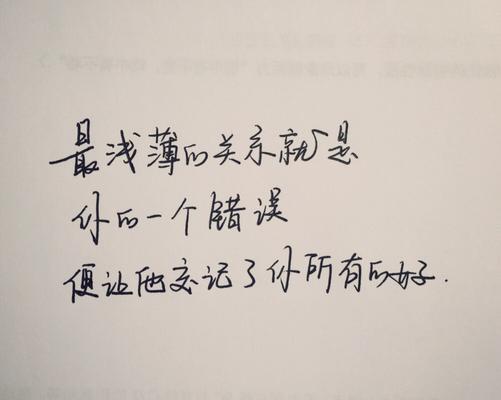 最浅薄的关系就是
你的一个错误
便让他忘记了你所有的好.